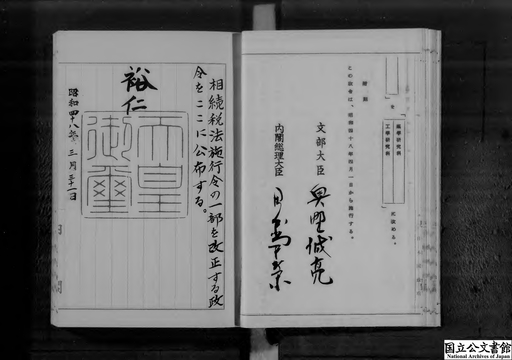 を
薬学研究科
工学研究科
に改める。
附則
この政令は、昭和四十八年四月一日から施行する。
文部大臣 奥野誠亮
内閣総理大臣 田中角榮
相続税法施行令の一部を改正する政
令をここに公布する。
裕仁
天皇
御璽
昭和四十八年三月三十一日
国立公文書館
National Archives of Japan